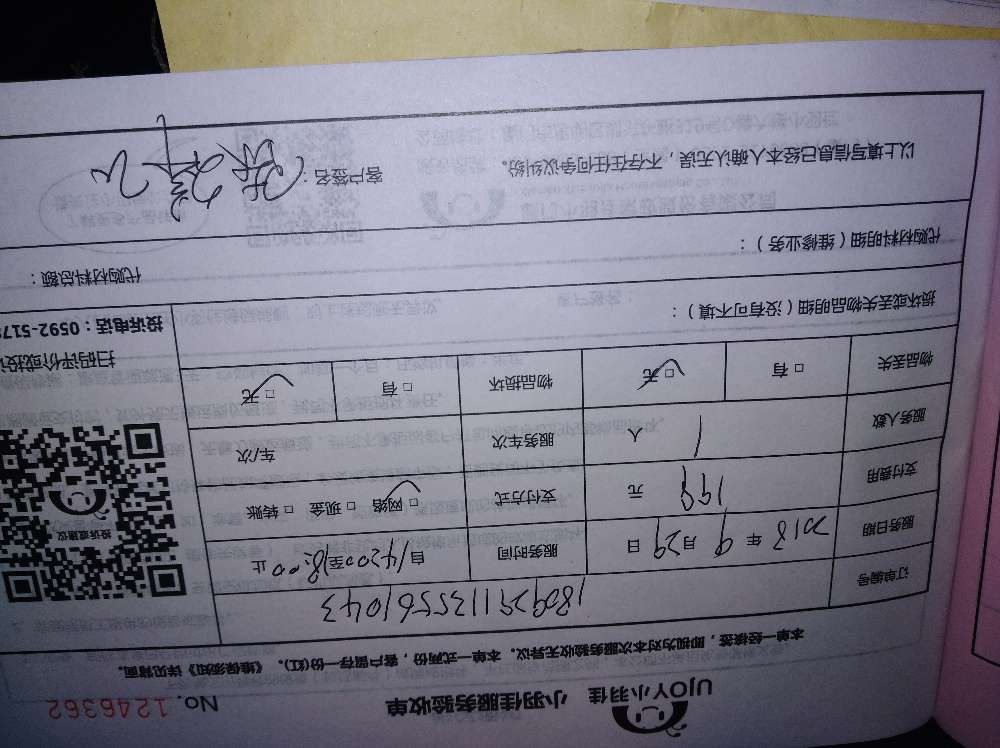 UJOY小羽佳 小羽佳服务验收单 No. 1246362
本单一经核签，即视为对本次服务验收无异议。本单一式两份，客户留存一份(红)。《维保须知》详见背面。
订单编号 1809291135561043
服务日期 2018 年 9 月 29 日 服务时间 自 14:00至18:00 止
支付费用 199 元 支付方式 □ 网络 □ 现金 □ 转账
服务人数 1 人 服务车次 车/次
物品丢失 □ 有 □ 无 物品损坏 □ 有 □ 无
投诉或建议
扫码评价或投
投诉电话：0592-517
损坏或丢失物品明细（没有可不填）：
代购材料明细（维修业务）： 代购材料总额：
以上填写信息已经本人确认无误，不存在任何争议纠纷。 客户签名：